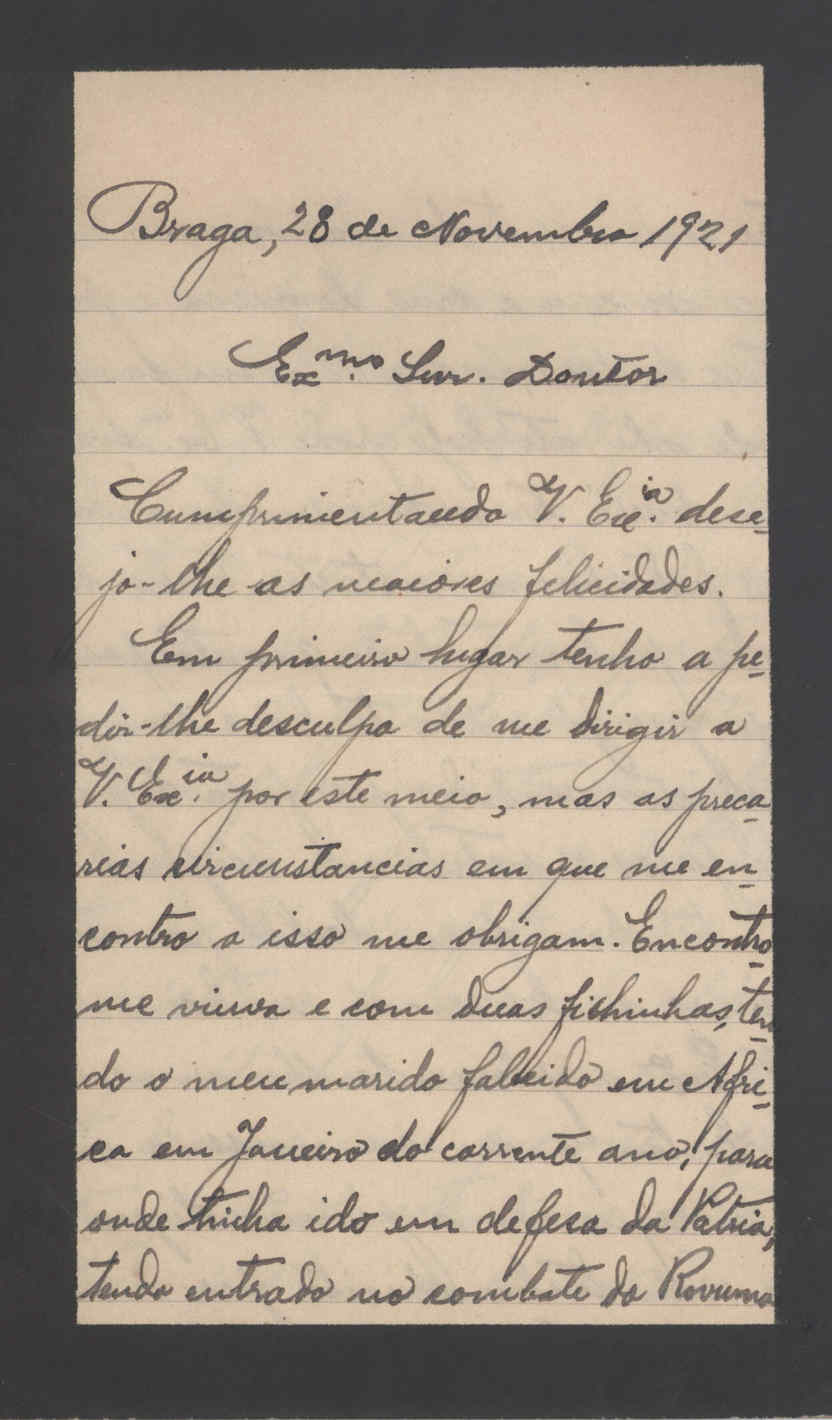 Braga, 28 de Novembro 1921
Exmo. Snr. Doutor
Cumprimentando V. Exia. dese-
jo-lhe as maiores felicidades.
Em primeiro lugar tenho a pe-
dir-lhe desculpa de me dirigir a
V. Exia. por este meio, mas as preca-
rias circunstancias em que me en-
contro a isso me obrigam. Encontro-
me viuva e com duas filhinhas, ten-
do o meu marido falecido em Afri-
ca em Janeiro do corrente ano, para
onde tinha ido em defesa da Patria,
tendo entrado no combate do Rovuma